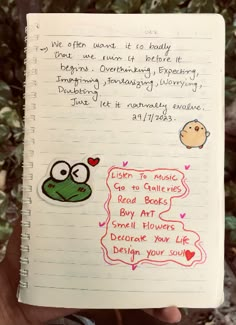 We often want it so badly
that we ruin it before it
begins. Overthinking, Expecting,
Imagining, Fantasizing, Worrying,
Doubting
Just let it naturally evolve.
29/7/2023.
Listen To Music
Go to Galleries
Read Books
Buy Art
Smell Flowers
Decorate Your Life
Design your soul